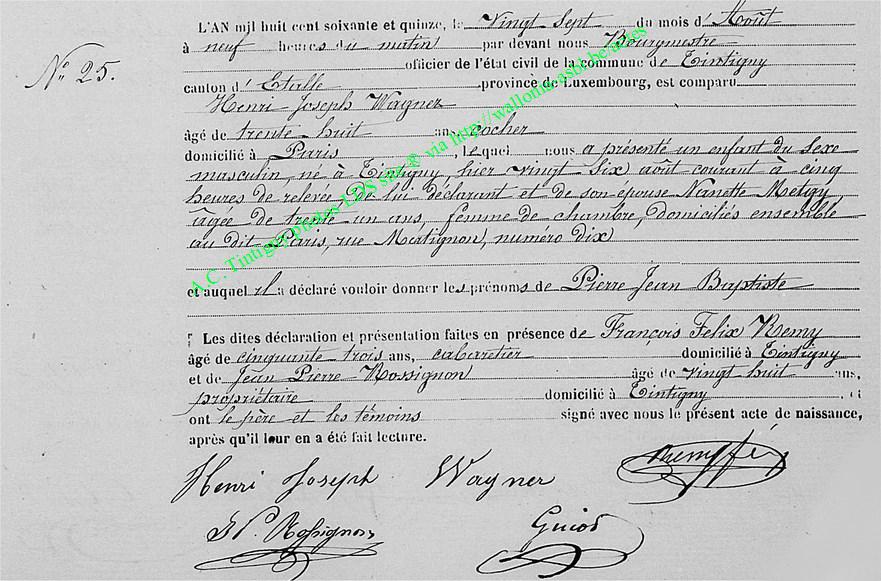 L'AN mil huit cent soixante et quinze, le vingt sept du mois d'Août
à neuf heures du matin par devant nous Bourgmestre
officier de l'état civil de la commune de Tintigny
N° 25.
canton d'Etalle province de Luxembourg, est comparu
Henri Joseph Wagner
âgé de trente huit ans, cocher
domicilié à Paris, lequel nous a présenté un enfant du sexe
masculin, né à Tintigny, hier vingt six août courant à cinq
heures de relevée, de lui déclarant et de son épouse Nanette
âgée de trente un ans, femme de chambre, domiciliés ensemble
au dit Paris, rue Matignon, numéro dix
et auquel il a déclaré vouloir donner les prénoms de Pierre Jean Baptiste
Les dites déclaration et présentation faites en présence de François Felix Remy
âgé de cinquante trois ans, cabaretier domicilié à Tintigny
et de Jean Pierre Rossignon âgé de vingt huit ans,
propriétaire domicilié à Tintigny, et
ont le père et les témoins signé avec nous le présent acte de naissance,
après qu'il leur en a été fait lecture.
Henri Joseph Wagner
J P. Rossignon
A.C. Tintigny photos LDS sur ® via http://wallonia-asbl.be/actes